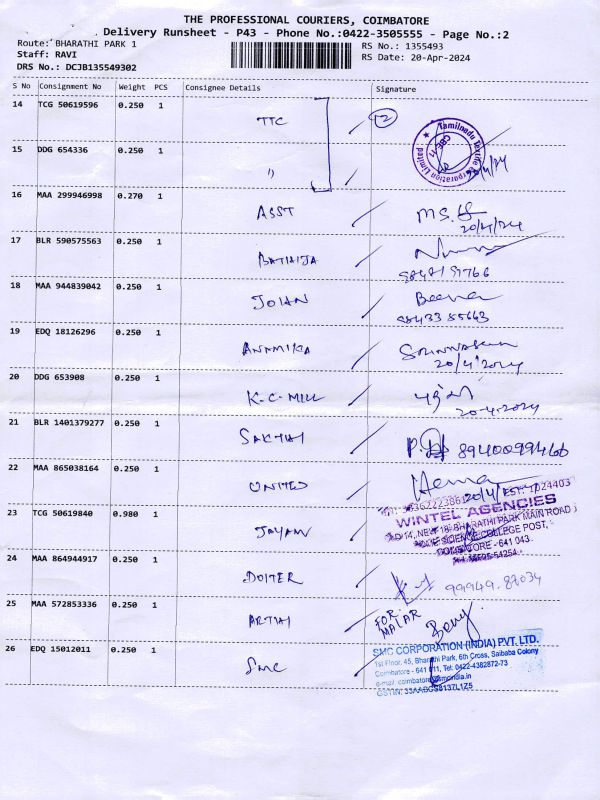 THE PROFESSIONAL COURIERS, COIMBATORE
Delivery Runsheet - P43 - Phone No.:0422-3505555 - Page No.:2
Route: BHARATHI PARK 1
Staff: RAVI
DRS No.: DCJB135549302
RS No.: 1355493
RS Date: 20-Apr-2024
S No Consignment No Weight PCS Consignee Details Signature
14 TCG 50619596 0.250 1 TTC 12
15 DDG 654336 0.250 1 " Tamilnadu Textile Corporation Limited 20/4/24
16 MAA 299946998 0.270 1 ASST M.S. 20/4/24
17 BLR 590575563 0.250 1 BATHIJA
18 MAA 944839042 0.250 1 JOHN Beena
98433 85643
19 EDQ 18126296 0.250 1 ANAMIKA
20/4/2024
20 DDG 653908 0.250 1 K.C. MILL
20-4-2024
21 BLR 1401379277 0.250 1 SAKTHI 8940099466
22 MAA 865038164 0.250 1 UNITED Hema
20/4/
23 TCG 50619840 0.980 1 JAYAM
WINTEL AGENCIES
NEW 18, BHARATHI PARK MAIN ROAD
SCIENCE COLLEGE POST,
COIMBATORE - 641 043
24 MAA 864944917 0.250 1 DOITER 99949.87034
25 MAA 572853336 0.250 1 ARTHI FOR.
MALAR
26 EDQ 15012011 0.250 1 SMC
SMC CORPORATION (INDIA) PVT. LTD.
1st Floor, 45, Bharathi Park, 6th Cross, Saibaba Colony
Coimbatore - 641 011, Tel: 0422-4382872-73
e-mail: coimbatore@smcindia.in
GSTIN: 33AABCS8137L1Z5